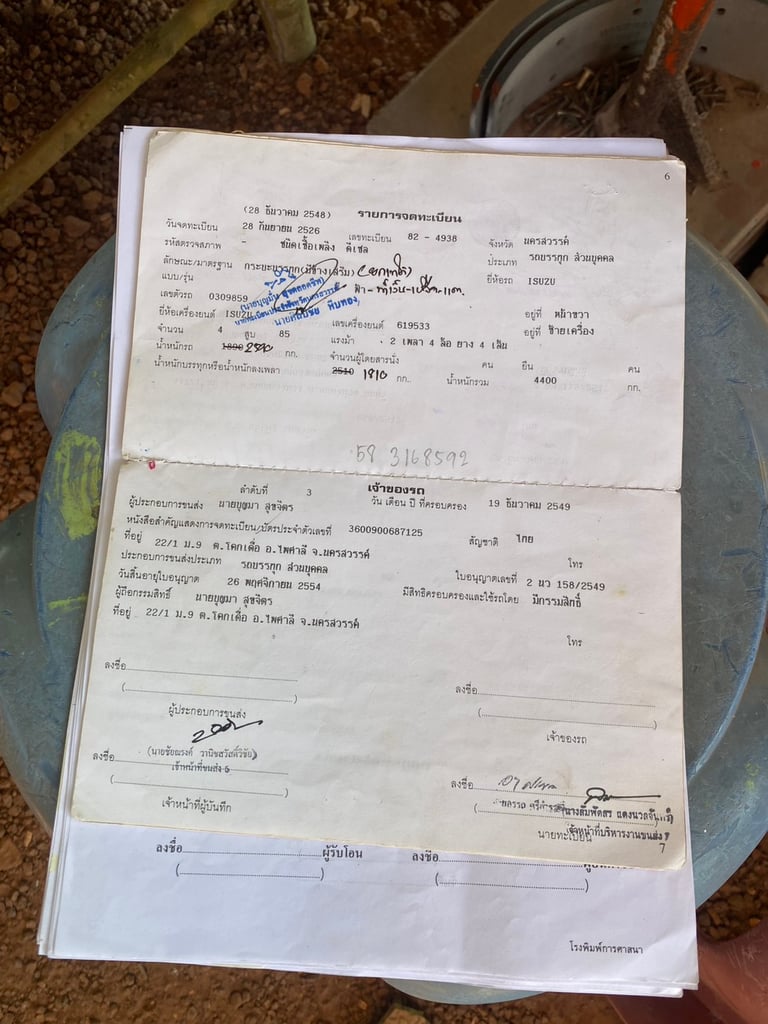 6
(28 ธันวาคม 2548) รายการจดทะเบียน
วันจดทะเบียน 28 กันยายน 2526 เลขทะเบียน 82 - 4938 จังหวัด นครสวรรค์
รหัสตรวจสภาพ - ชนิดเชื้อเพลิง ดีเซล ประเภท รถบรรทุก ส่วนบุคคล
ลักษณะ/มาตรฐาน กระบะบรรทุก(มีข้างเสริม) ยี่ห้อรถ ISUZU
แบบ/รุ่น
เลขตัวรถ 0309859 อยู่ที่ หน้าขวา
ยี่ห้อเครื่องยนต์ ISUZU เลขเครื่องยนต์ 619533 อยู่ที่ ซ้ายเครื่อง
จำนวน 4 สูบ 85 แรงม้า 2 เพลา 4 ล้อ ยาง 4 เส้น
น้ำหนักรถ 1890 กก. จำนวนผู้โดยสารนั่ง คน ยืน คน
น้ำหนักบรรทุกหรือน้ำหนักลงเพลา 2510 1810 กก. น้ำหนักรวม 4400 กก.
58 3168592
ลำดับที่ 3 เจ้าของรถ
ผู้ประกอบการขนส่ง นายบุญมา สุขจิตร วัน เดือน ปี ที่ครอบครอง 19 ธันวาคม 2549
หนังสือสำคัญแสดงการจดทะเบียน/บัตรประจำตัวเลขที่ 3600900687125 สัญชาติ ไทย
ที่อยู่ 22/1 ม.9 ต.โคกเดื่อ อ.ไพศาลี จ.นครสวรรค์ โทร
ประกอบการขนส่งประเภท รถบรรทุก ส่วนบุคคล ใบอนุญาตเลขที่ 2 นว 158/2549
วันสิ้นอายุใบอนุญาต 26 พฤศจิกายน 2554 มีสิทธิครอบครองและใช้รถโดย มีกรรมสิทธิ์
ผู้ถือกรรมสิทธิ์ นายบุญมา สุขจิตร
ที่อยู่ 22/1 ม.9 ต.โคกเดื่อ อ.ไพศาลี จ.นครสวรรค์
โทร
ลงชื่อ ลงชื่อ
(....................) (....................)
ผู้ประกอบการขนส่ง เจ้าของรถ
ลงชื่อ (นายชัยณรงค์ วานิชสวัสดิ์วิชัย) ลงชื่อ
เจ้าหน้าที่ขนส่ง 5
เจ้าหน้าที่ผู้บันทึก นายทะเบียน
เจ้าหน้าที่บริหารงานขนส่ง
7
ลงชื่อ ผู้รับโอน ลงชื่อ
(....................) (....................)
โรงพิมพ์การศาสนา